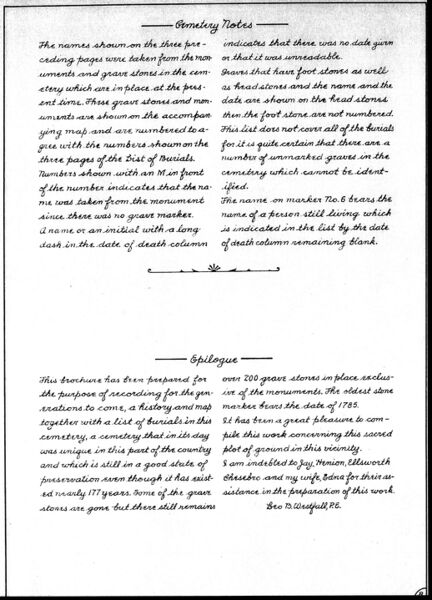 Cemetery Notes
The names shown on the three pre-
ceding pages were taken from the mon-
uments and grave stones in the cem-
etery which are in place at the pres-
ent time. These grave stones and mon-
uments are shown on the accompan-
ying map and are numbered to a-
gree with the numbers shown on the
three pages of the List of Burials.
Numbers shown with an M in front
of the number indicates that the na-
me was taken from the monument
since there was no grave marker.
A name or an initial with a long
dash in the date of death column
indicates that there was no date given
or that it was unreadable.
Graves that have foot stones as well
as head stones and the name and the
date are shown on the head stones
then the foot stone are not numbered.
This list does not cover all of the burials
for it is quite certain that there are a
number of unmarked graves in the
cemetery which cannot be ident-
ified.
The name on marker No. 6 bears the
name of a person still living which
is indicated in the list by the date
of death column remaining blank.
Epilogue
This brochure has been prepared for
the purpose of recording for the gen-
erations to come, a history and map
together with a list of burials in this
cemetery, a cemetery that in its day
was unique in this part of the country
and which is still in a good state of
preservation even though it has exist-
ed nearly 177 years. Some of the grave
stones are gone but there still remains
over 200 grave stones in place exclus-
ive of the monuments. The oldest stone
marker bears the date of 1785.
It has been a great pleasure to com-
pile this work concerning this sacred
plot of ground in this vicinity.
I am indebted to Jay, Henion, Ellsworth
Chesebro and my wife, Edna for their as-
sistance in the preparation of this work.
Geo. B. Westfall, P.E.